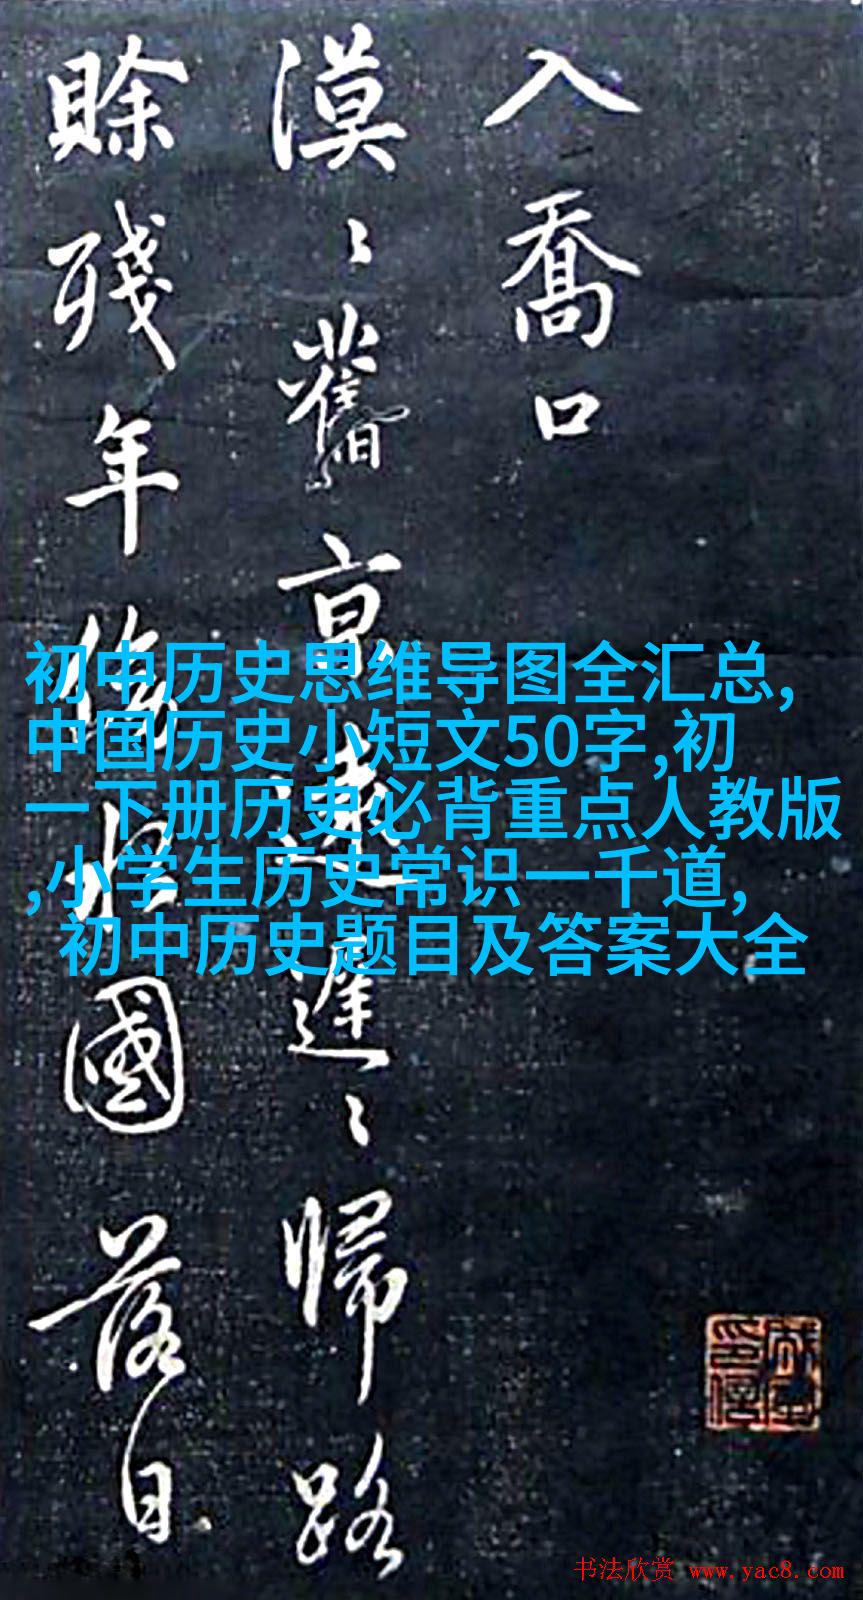 入喬口
漠〻舊京遠遲〻歸路
賖殘年傍水國落日
初中历史思维导图全汇总,
中国历史小短文50字,初
一下册历史必背重点人教版
,小学生历史常识一千道,
初中历史题目及答案大全
书法欣赏 www.yac8.com